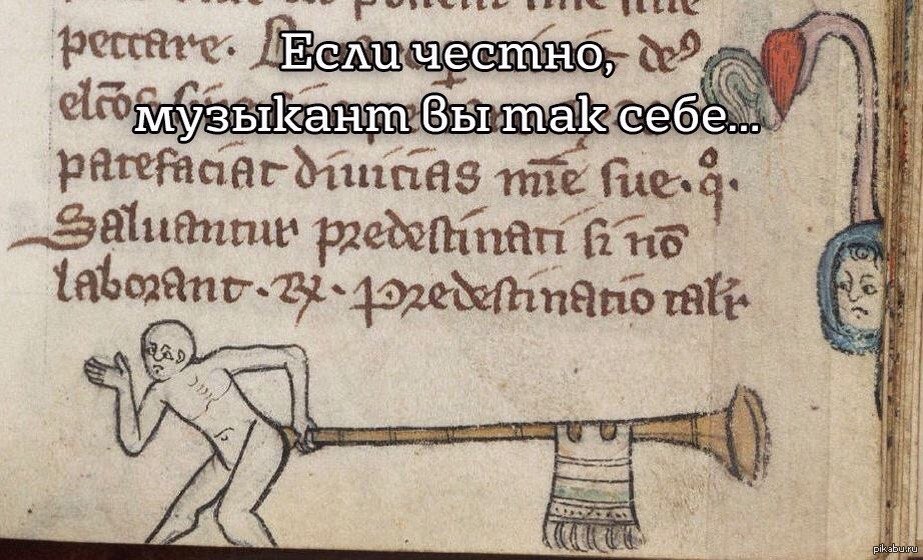 peccare.
Если честно,
музыкант вы так себе...
patefaciat diuicias mīe sue.
Saluantur predestinati si nō
laborant. Predestinatio talr
pikabu.ru